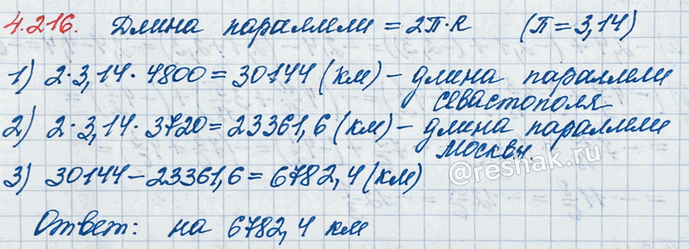 4.216. Длина параллели = 2π·R (π=3,14)
1) 2·3,14·4800=30144 (км) – длина параллели
Севастополя
2) 2·3,14·3720=23361,6 (км) – длина параллели
Москвы
3) 30144–23361,6=6782,4 (км)
©reshak.ru
Ответ: на 6782,4 км